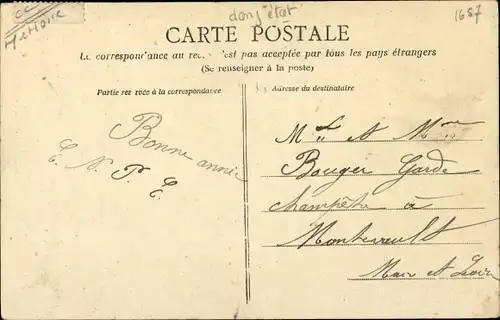 dans état
1687
CARTE POSTALE
La correspondance au recto n'est pas acceptée par tous les pays étrangers
(Se renseigner à la poste)
Partie réservée à la correspondance
Adresse du destinataire
Bonne année
E. N. P. E.
Mr et Mme
Bouger Garde
champêtre à
Montrevault
Maine et Loire